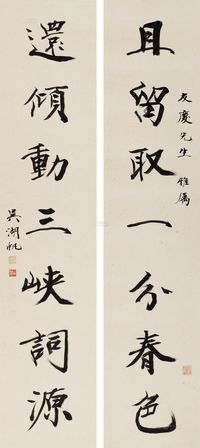 友慶先生雅屬
且留取一分春色
還傾動三峽詞源
吳湖帆